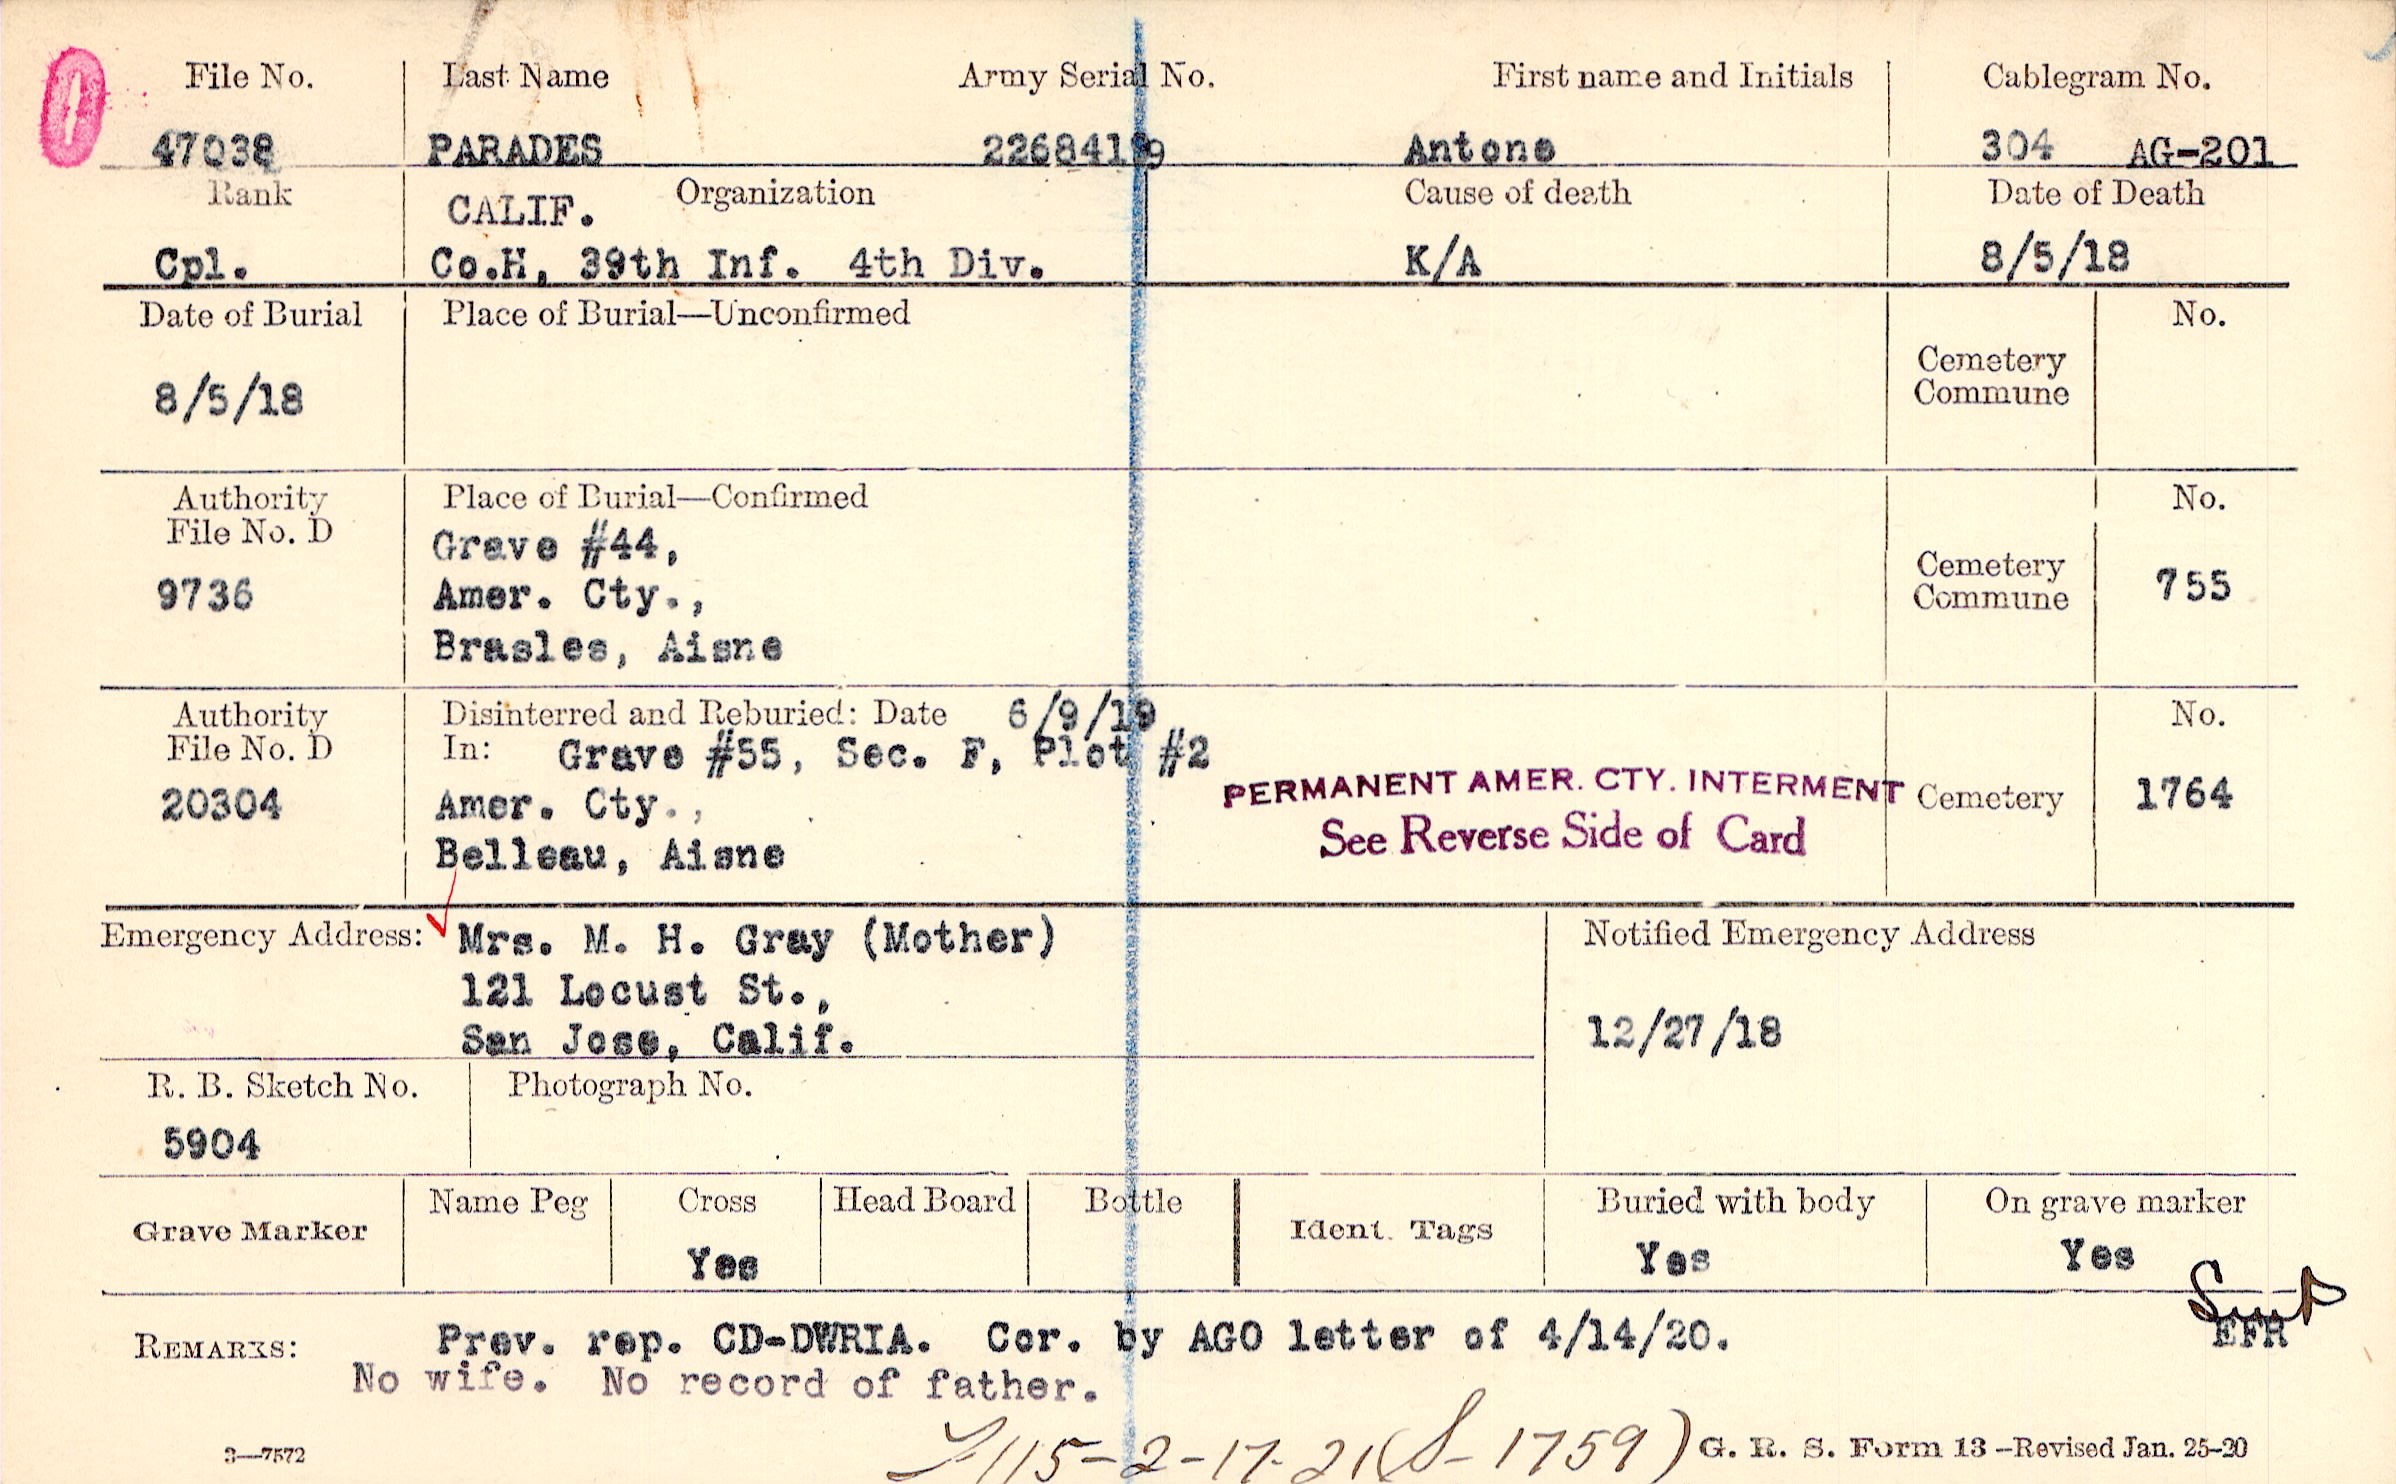 File No. Last Name Army Serial No. First name and Initials Cablegram No.
47038 PARADES 2268419 Antone 304 AG-201
Rank Organization Cause of death Date of Death
CALIF.
Cpl. Co.H, 39th Inf. 4th Div. K/A 8/5/18
Date of Burial Place of Burial—Unconfirmed No.
Cemetery
Commune
8/5/18
Authority Place of Burial—Confirmed No.
File No. D
Grave #44,
Cemetery
Commune
9736 Amer. Cty., 755
Brasles, Aisne
Authority Disinterred and Reburied: Date 6/9/19 No.
File No. D In: Grave #55, Sec. F, Plot #2
PERMANENT AMER. CTY. INTERMENT
20304 Amer. Cty., Cemetery 1764
See Reverse Side of Card
Belleau, Aisne
Emergency Address: Mrs. M. H. Gray (Mother) Notified Emergency Address
121 Locust St.,
San Jose, Calif. 12/27/18
R. B. Sketch No. Photograph No.
5904
Grave Marker Name Peg Cross Head Board Bottle Ident. Tags Buried with body On grave marker
Yes Yes Yes
REMARKS: Prev. rep. CD-DWRIA. Cor. by AGO letter of 4/14/20. EFR
No wife. No record of father.
115-2-17-21(S-1759)
3—7572 G. R. S. Form 13 —Revised Jan. 25-20